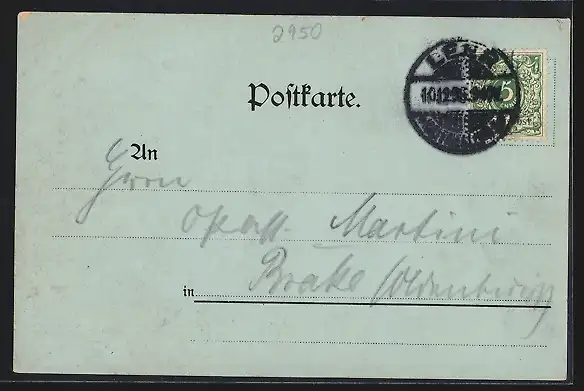 2950
Postkarte.
5
An
Herrn
Martini
in Brake (Oldenburg)